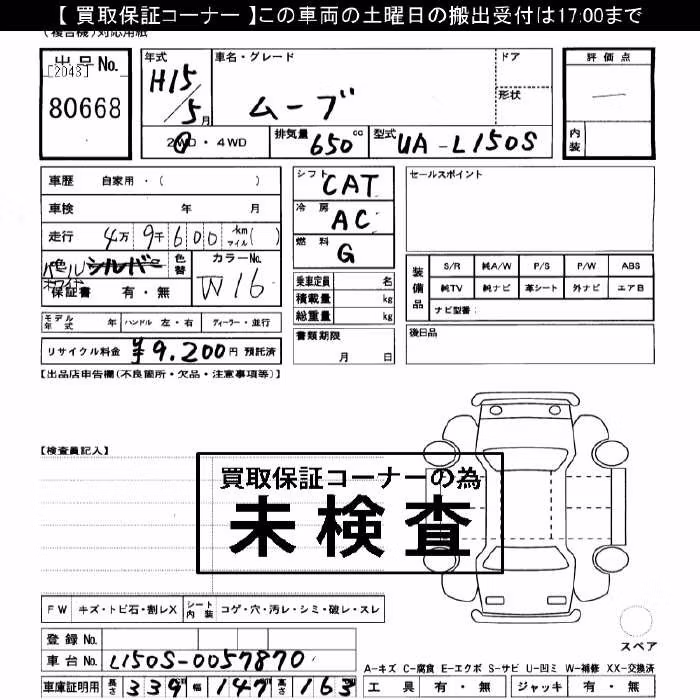 【 買取保証コーナー 】この車両の土曜日の搬出受付は17:00まで
(複合機)対応用紙
出品No.
[2043]
80668
年式
H15/5月
車名・グレード
ムーブ
ドア
形状
評価点
内装
2WD・4WD
排気量 650cc
型式 UA-L150S
車歴 自家用・( )
車検 年 月
走行 4万9千600km マイル( )
シルバー
パールホワイト
色替
カラーNo.
W16
保証書 有・無
シフト CAT
冷房 AC
燃料 G
乗車定員 名
積載量 kg
総重量 kg
書類期限
月 日
セールスポイント
装備品
S/R 純A/W P/S P/W ABS
純TV 純ナビ 革シート 外ナビ エアB
ナビ型番:
後日品
モデル年式 年 ハンドル 左・右 ディーラー・並行
リサイクル料金 ¥9,200円 預託済
【出品店申告欄(不良箇所・欠品・注意事項等)】
【検査員記入】
買取保証コーナーの為
未検査
FW キズ・トビ石・割レX シート内装 コゲ・穴・汚レ・シミ・破レ・スレ
登録No.
車台No. L150S-0057870
車庫証明用 長さ 339 幅 147 高さ 163
スペア
A-キズ C-腐食 E-エクボ S-サビ U-凹ミ W-補修 XX-交換済
工具 有・無 ジャッキ 有・無